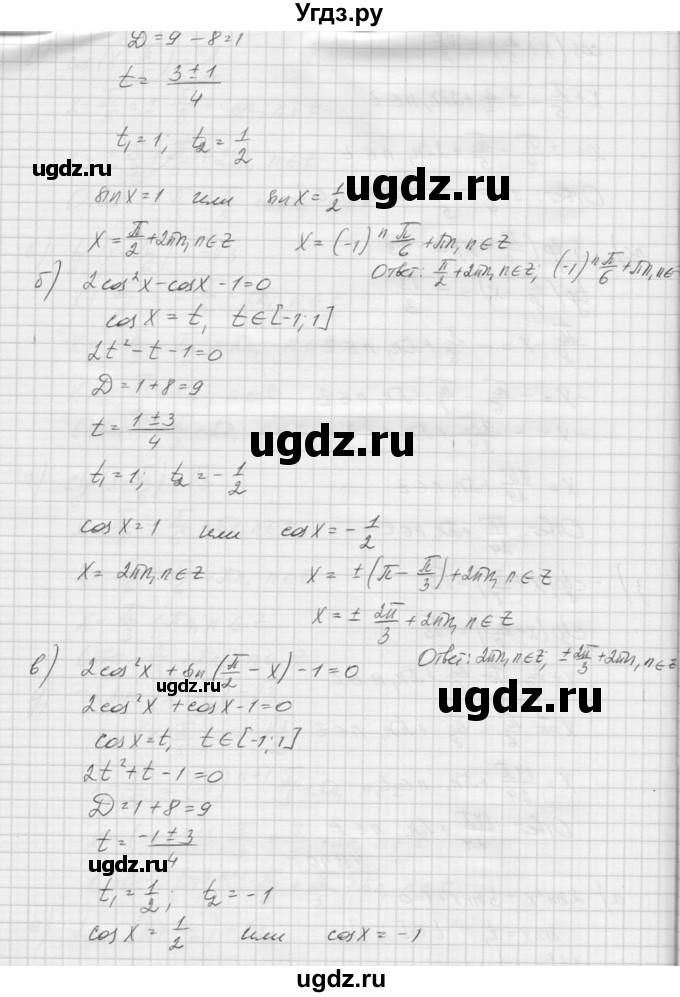 Угдз.ру
D = 9 - 8 = 1
t = (3 ± 1)/4
t₁ = 1; t₂ = 1/2
ugdz.ru
sin x = 1 или sin x = 1/2
ugdz.ru
x = π/2 + 2πn, n ∈ Z x = (-1)ⁿ π/6 + πn, n ∈ Z
Ответ: π/2 + 2πn, n ∈ Z; (-1)ⁿ π/6 + πn, n ∈
б) 2cos²x - cosx - 1 = 0
cos x = t, t ∈ [-1; 1]
2t² - t - 1 = 0
D = 1 + 8 = 9
t = (1 ± 3)/4
ugdz.ru
t₁ = 1; t₂ = - 1/2
cos x = 1 или cos x = - 1/2
x = 2πn, n ∈ Z x = ±(π - π/3) + 2πn, n ∈ Z
x = ± 2π/3 + 2πn, n ∈ Z
Ответ: 2πn, n ∈ Z; ± 2π/3 + 2πn, n ∈ Z
в) 2cos²x + sin(π/2 - x) - 1 = 0
ugdz.ru
2cos²x + cosx - 1 = 0
cos x = t, t ∈ [-1; 1]
ugdz.ru
2t² + t - 1 = 0
D = 1 + 8 = 9
t = (-1 ± 3)/4
ugdz.ru
t₁ = 1/2; t₂ = -1
cos x = 1/2 или cos x = -1
ugdz.ru